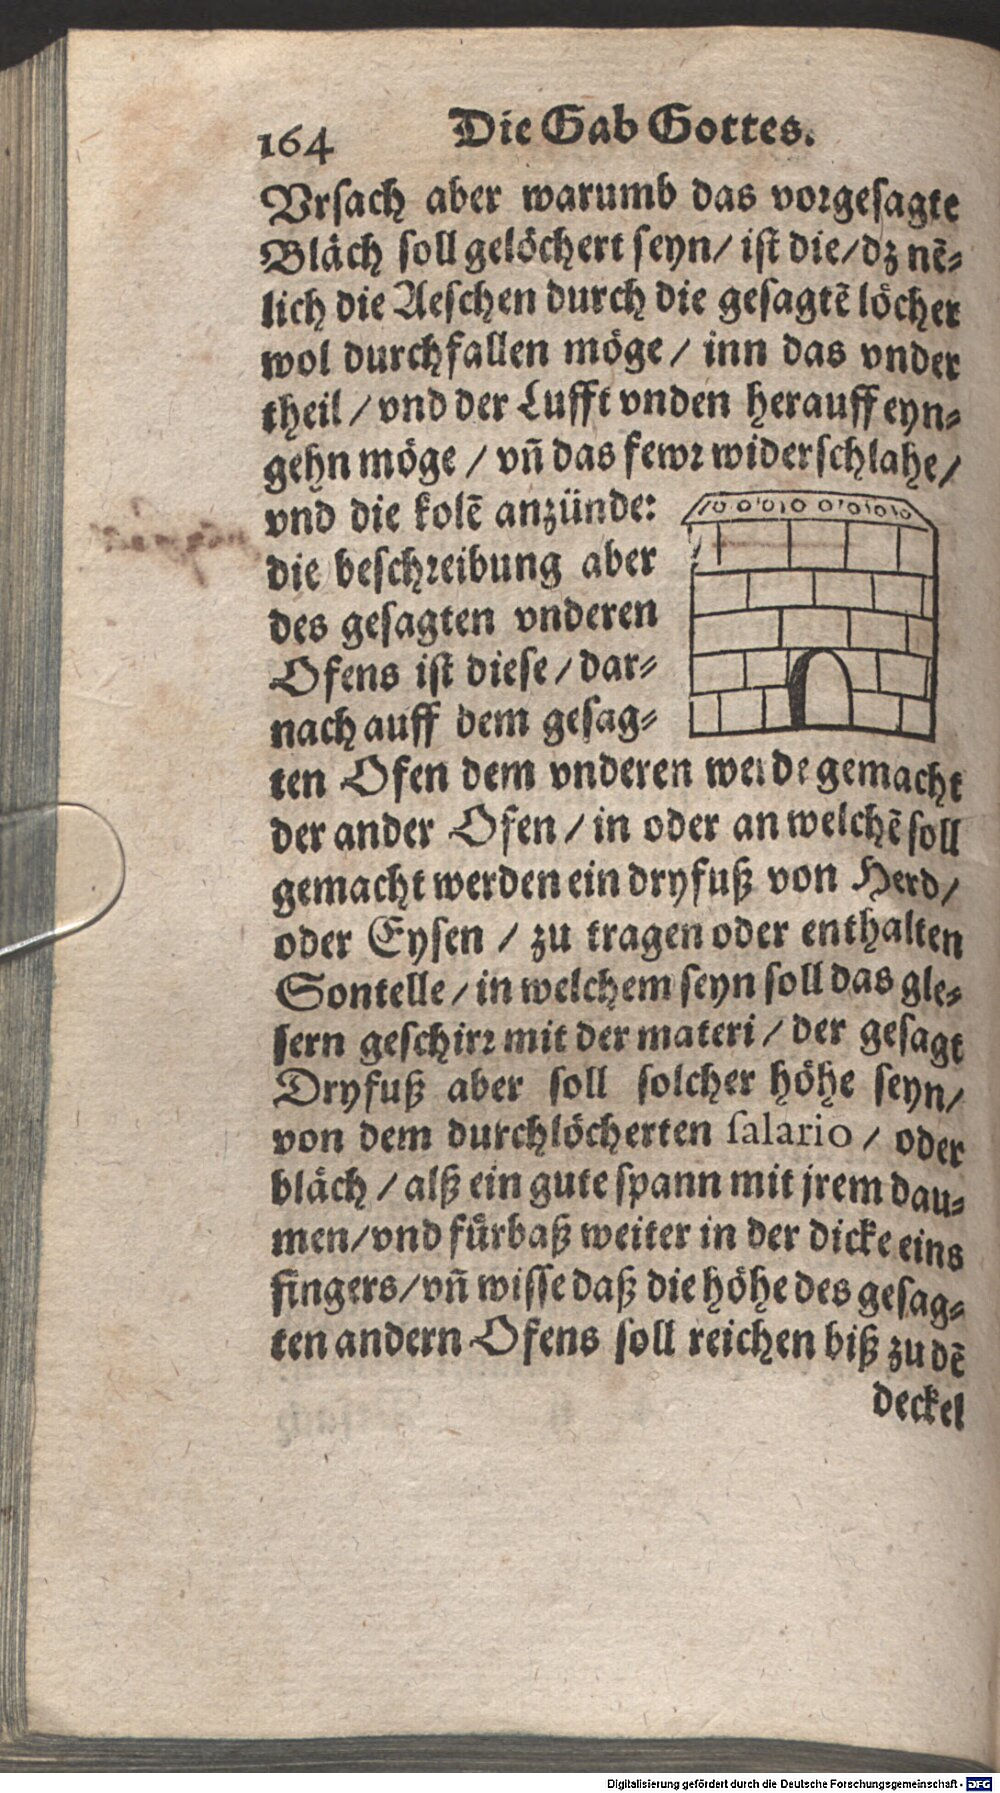 164 Die Gab Gottes.
Vrsach aber warumb das vorgesagte
Bläch soll gelöchert seyn/ ist die/ dz nē-
lich die Aeschen durch die gesagtē löcher
wol durchfallen möge/ inn das vnder
theil/ vnd der Lufft vnden herauff eyn-
gehn möge/ vñ das fewr widerschlahe/
vnd die kolē anzünde:
die beschreibung aber
des gesagten vnderen
Ofens ist diese/ dar-
nach auff dem gesag-
ten Ofen dem vnderen werde gemacht
der ander Ofen/ in oder an welchē soll
gemacht werden ein dryfuß von Herd/
oder Eysen/ zu tragen oder enthalten
Sontelle/ in welchem seyn soll das gle-
sern geschirr mit der materi/ der gesagt
Dryfuß aber soll solcher höhe seyn/
von dem durchlöcherten salario/ oder
bläch/ alß ein gute spann mit jrem dau-
men/ vnd fürbaß weiter in der dicke eins
fingers/ vñ wisse daß die höhe des gesag-
ten andern Ofens soll reichen biß zu dē
deckel
Digitalisierung gefördert durch die Deutsche Forschungsgemeinschaft - DFG